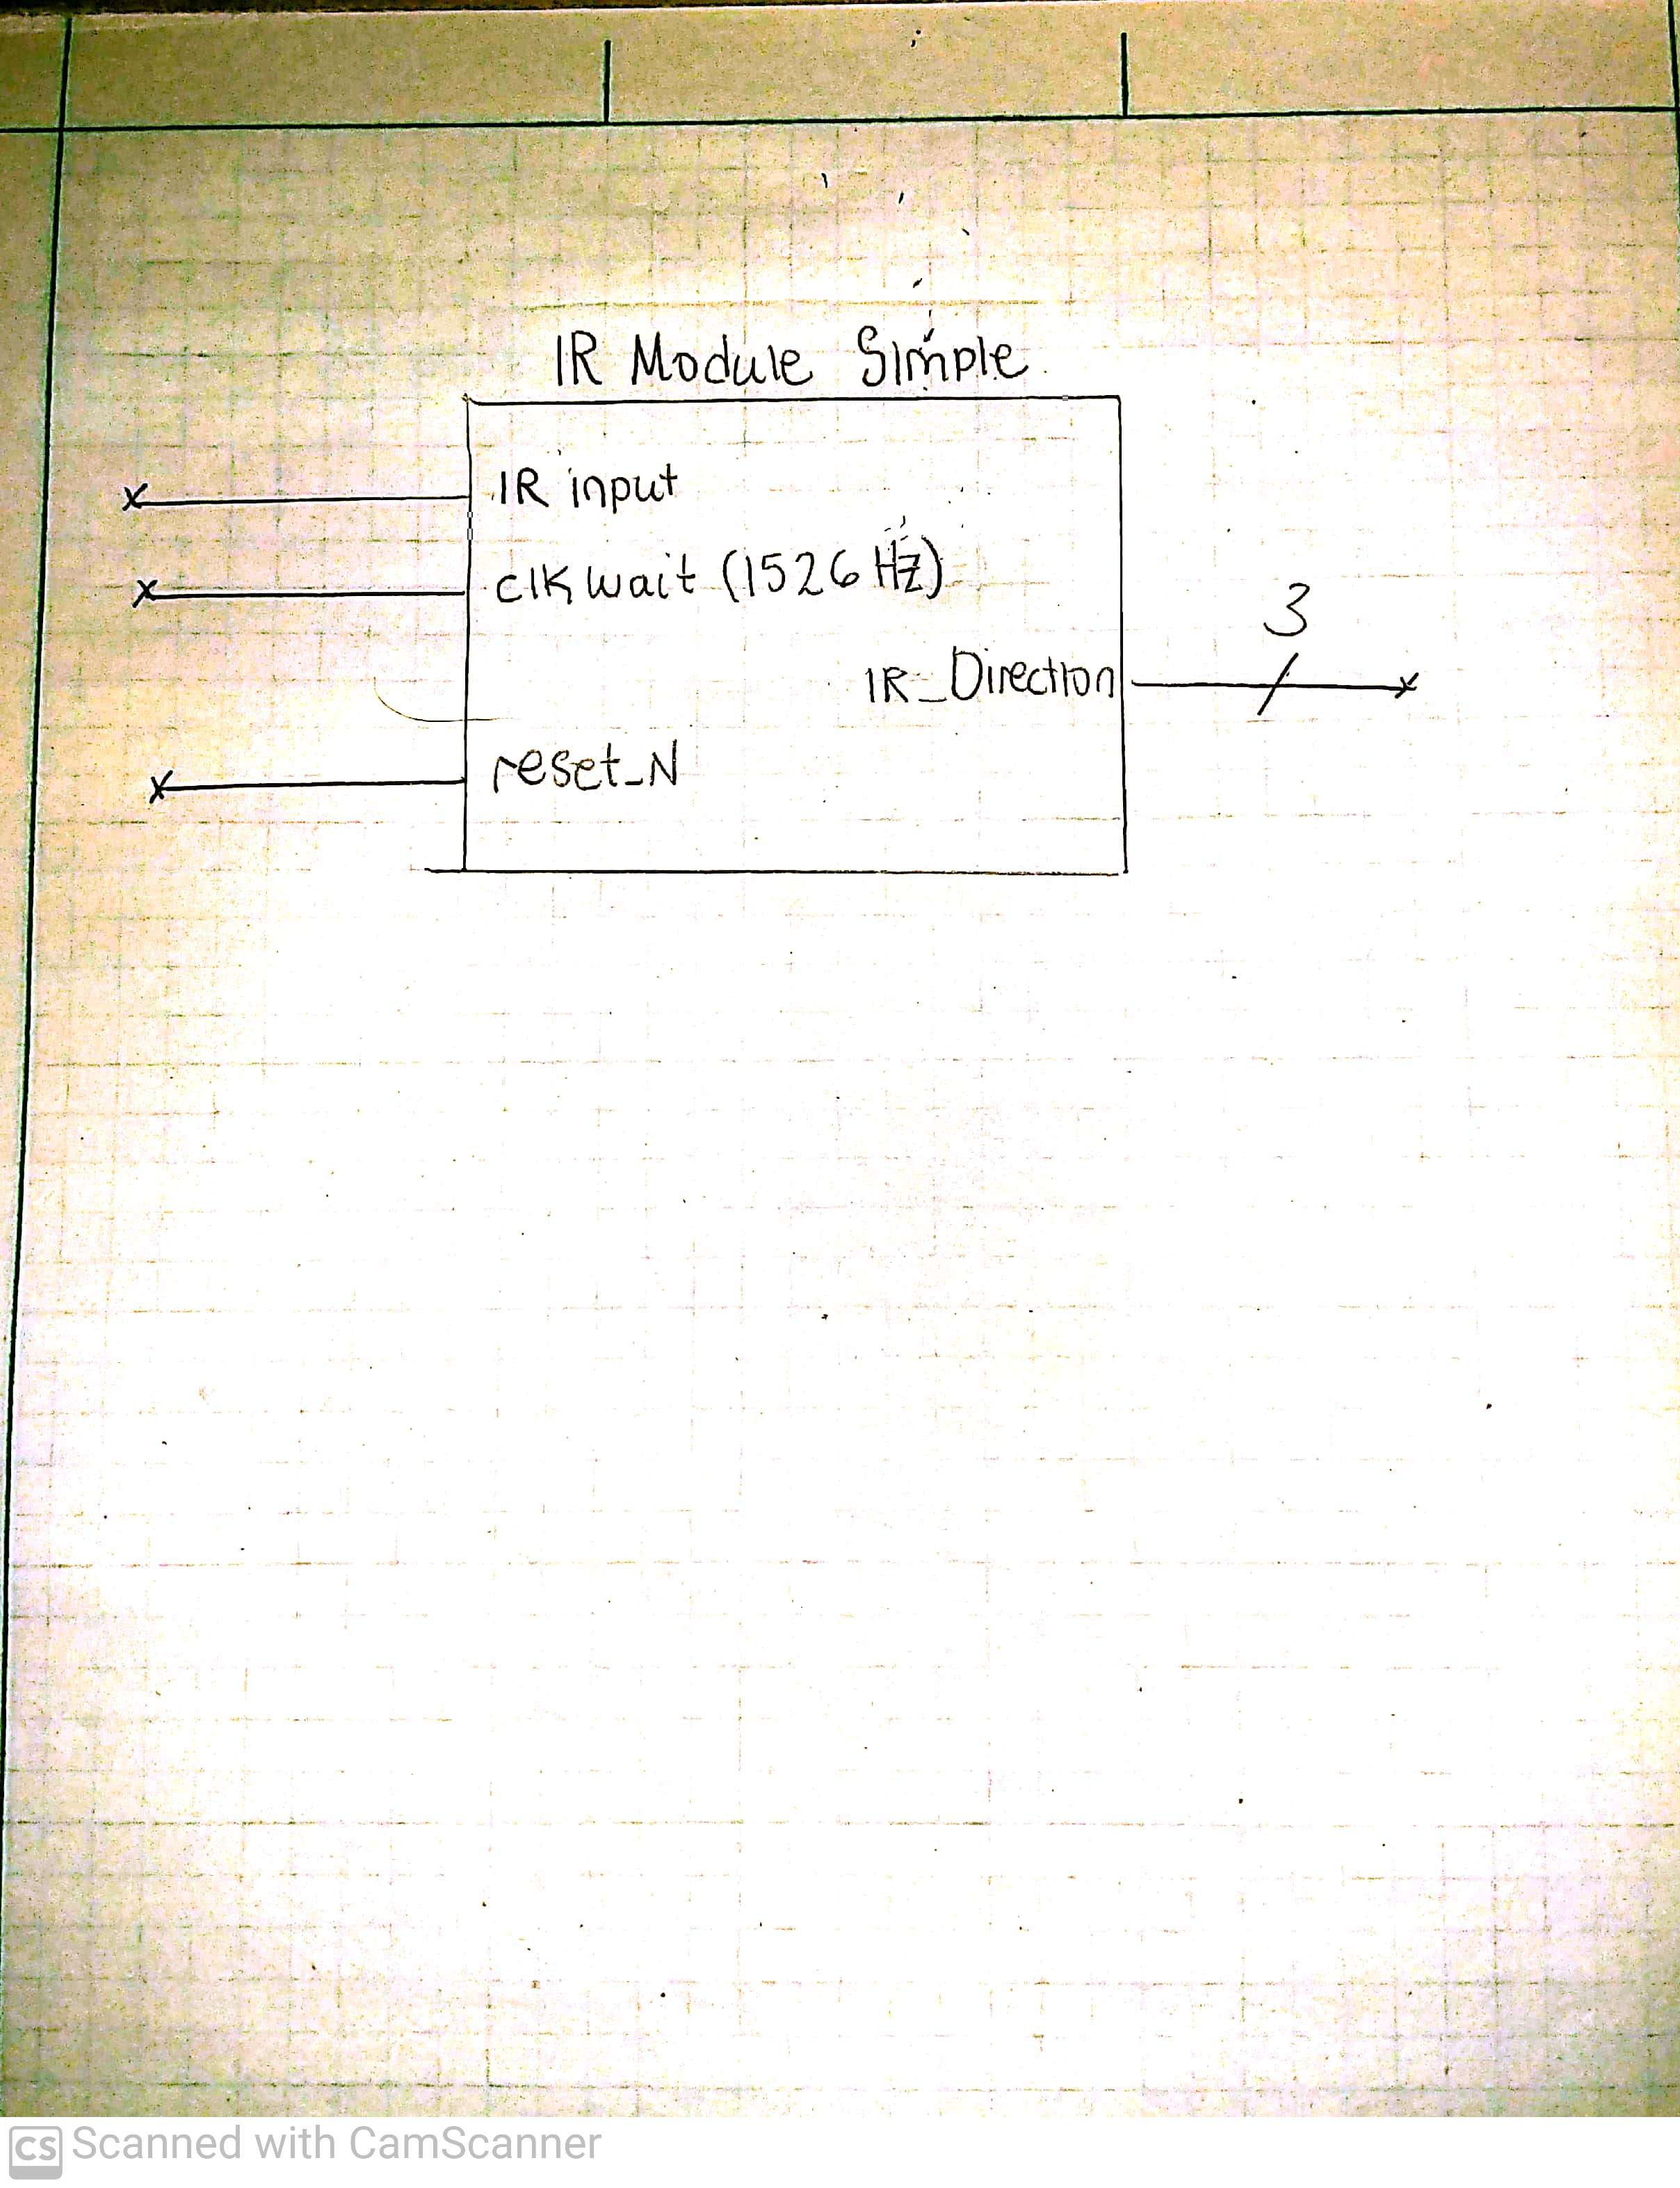 IR Module Simple
IR input
clk wait (1526 Hz)
3
IR_Direction
reset_N
CS Scanned with CamScanner